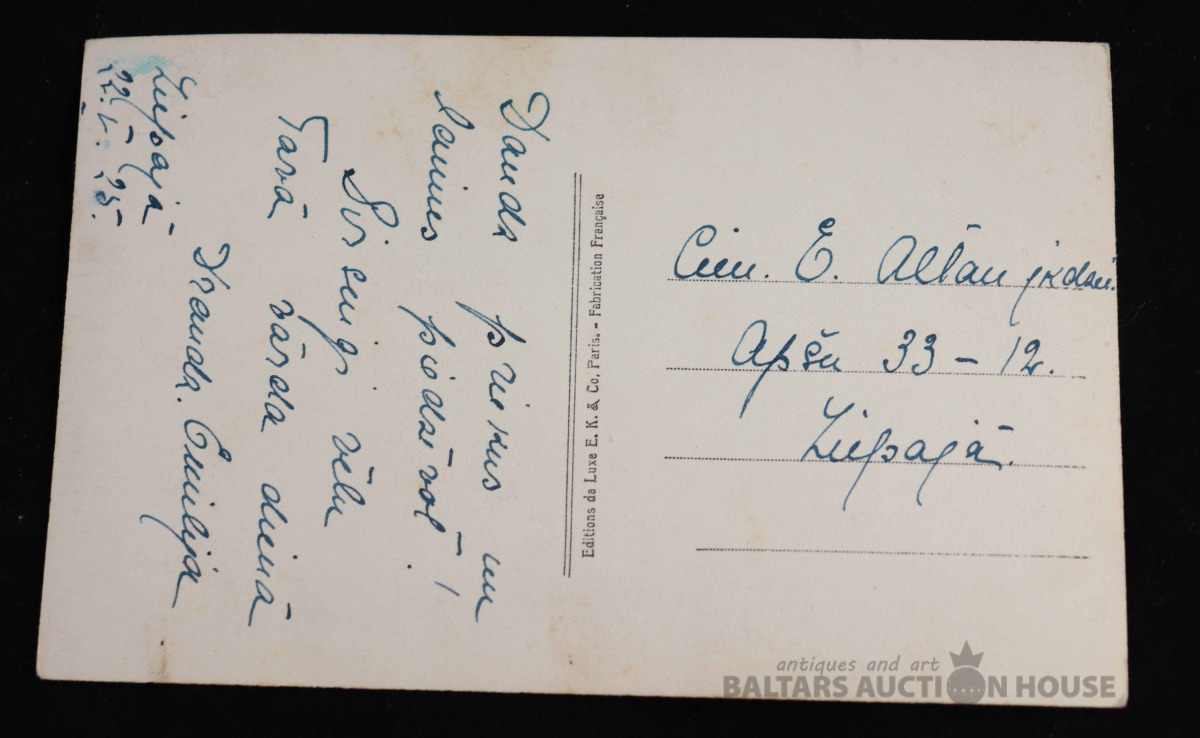 Daudz prieku un
laimes piedzīvot!
Sirsnīgi vēlu
Tavā vārda dienā
Draudz. Emilija
Liepājā
22. V. 25.
Editions de Luxe E. K. & Co, Paris. - Fabrication Française
Cien. E. Altān jkdzei.
Apšu 33 - 12.
Liepājā.
antiques and art
BALTARS AUCTION HOUSE